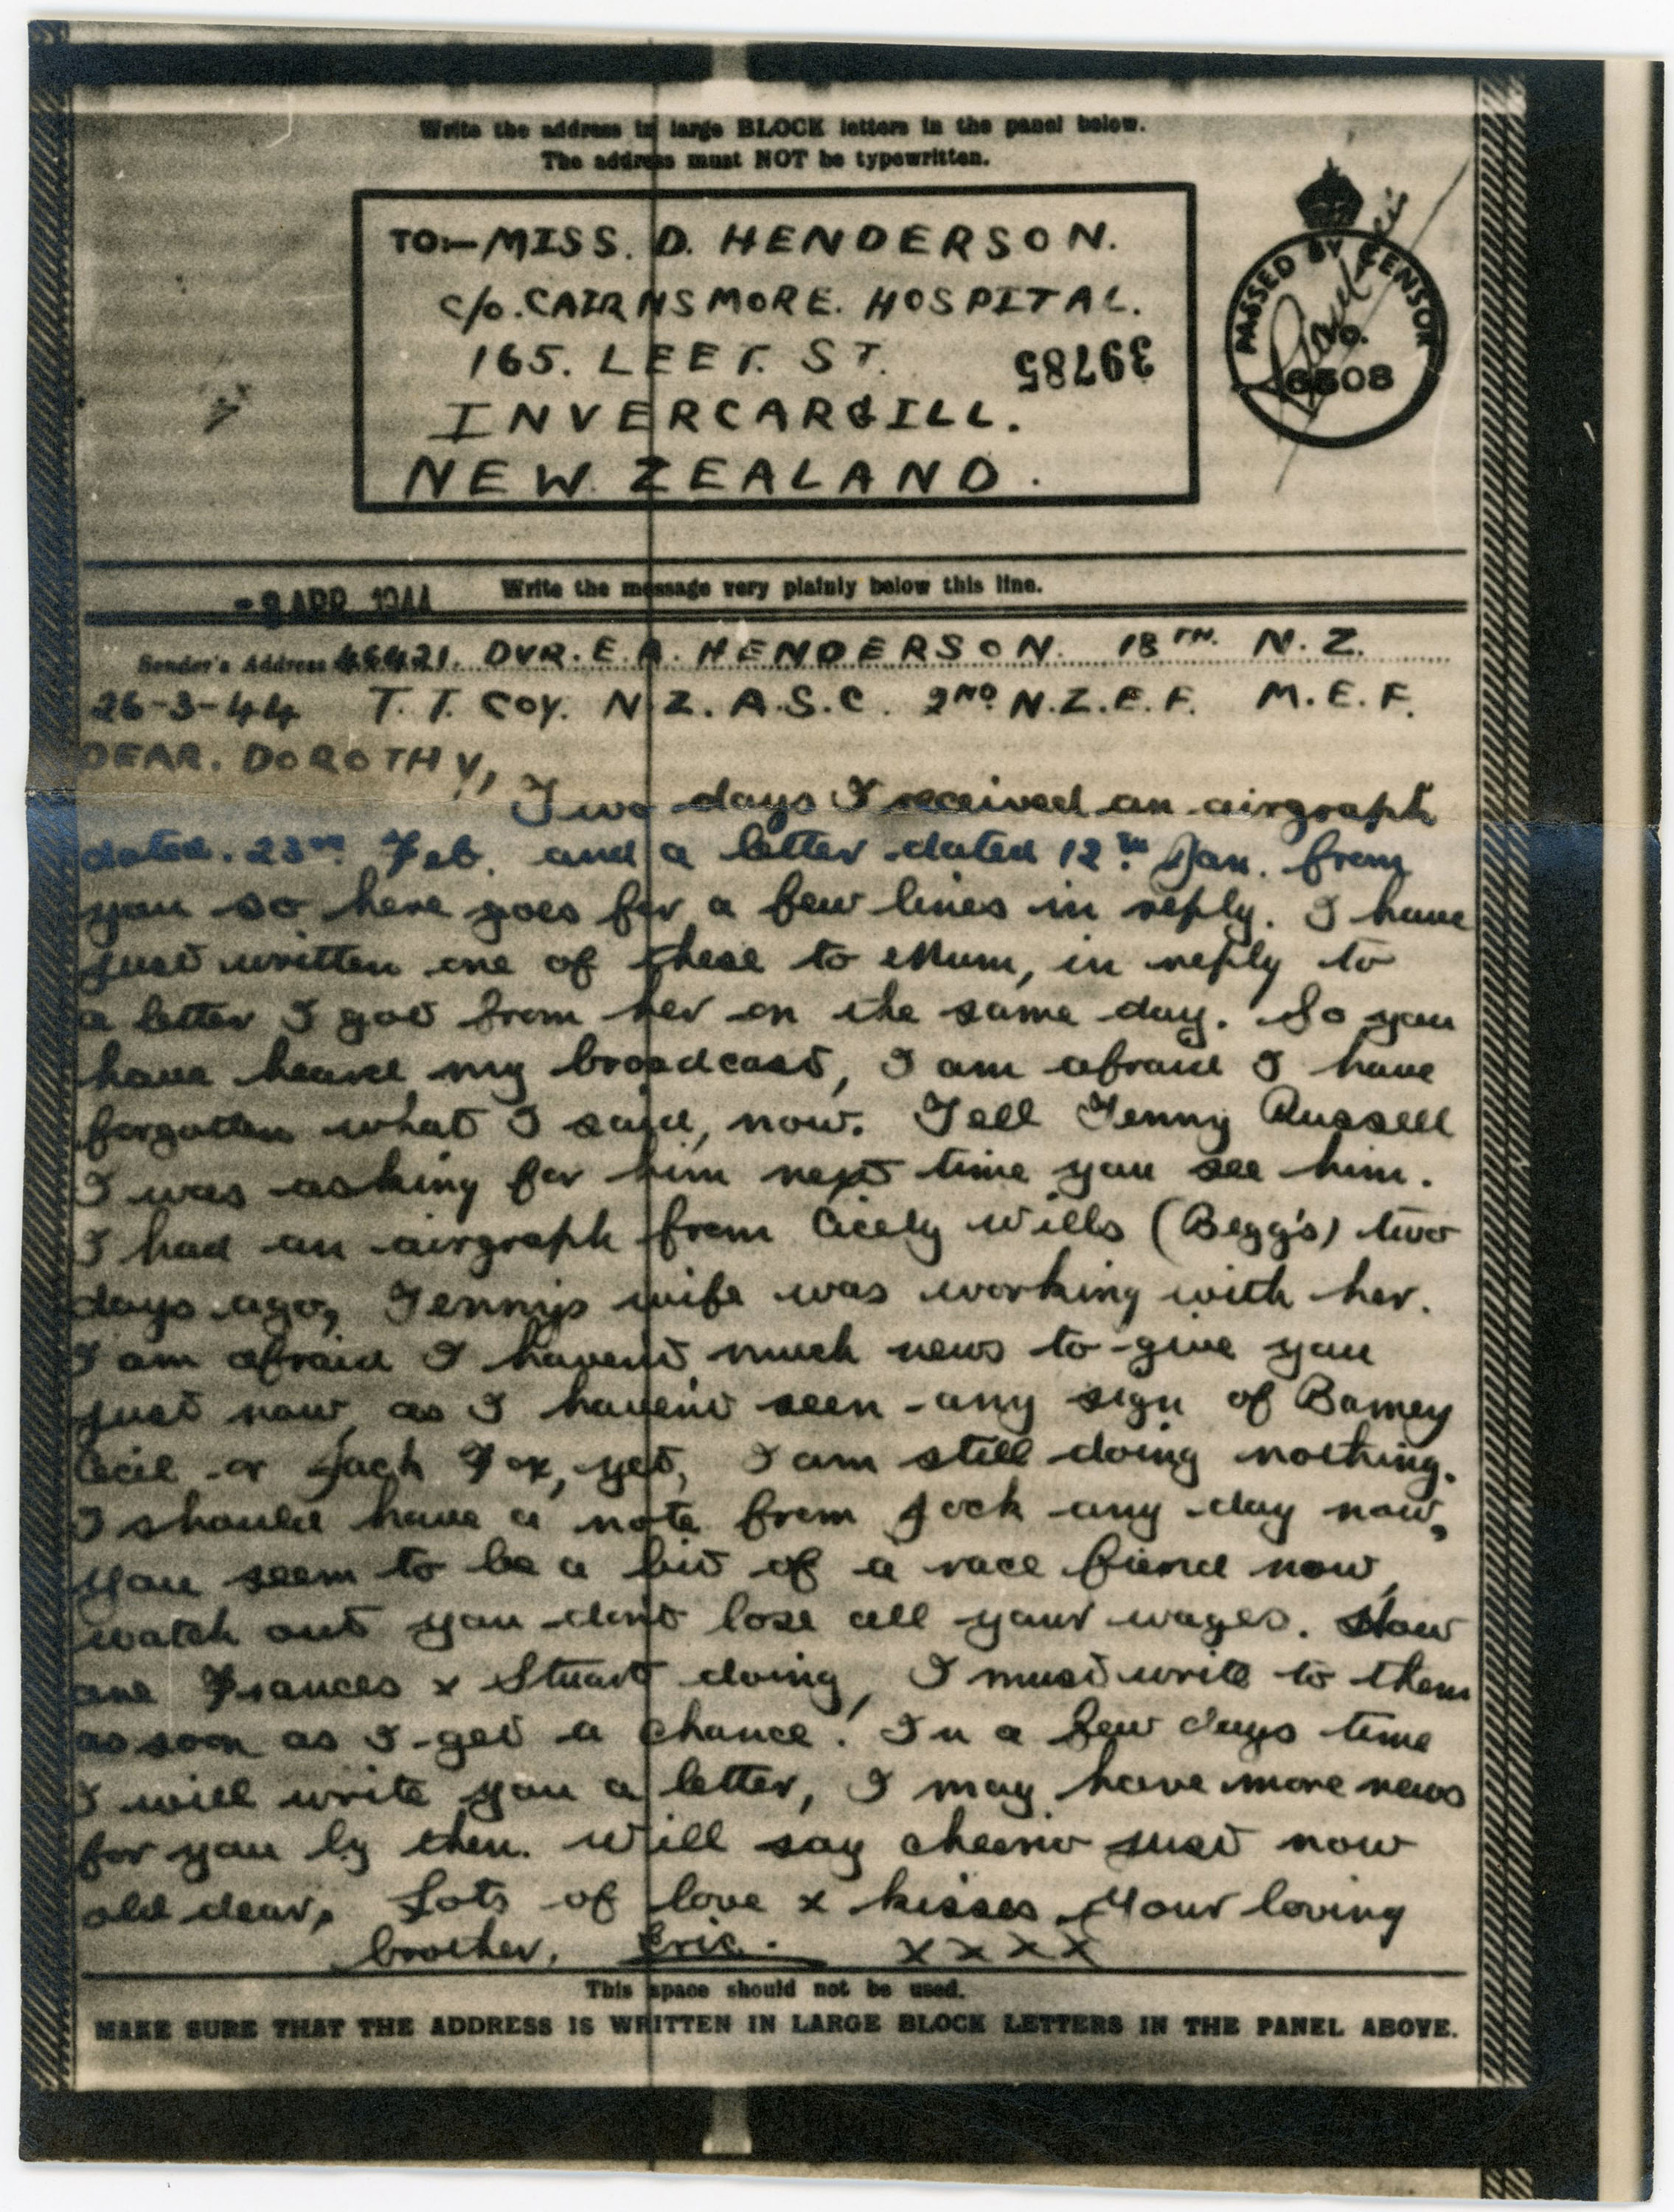 Write the address in large BLOCK letters in the panel below.
The address must NOT be typewritten.
TO:- MISS. D. HENDERSON.
c/o. CAIRNSMORE. HOSPITAL.
165. LEET. ST.
39785
INVERCARGILL.
NEW. ZEALAND.
PASSED BY CENSOR
Write the message very plainly below this line.
APR 1944
Sender's Address 46421. DVR. E. A. HENDERSON. 18TH. N. Z.
26-3-44 T. T. COY. N.Z. A.S.C. 2ND N.Z.E.F. M.E.F.
DEAR. DOROTHY,
Two days I received an airgraph
dated. 23rd. Feb. and a letter dated 12th. Jan. from
you so here goes for a few lines in reply. I have
just written one of these to Mum, in reply to
a letter I got from her on the same day. So you
have heard my broadcast, I am afraid I have
forgotten what I said, now. Tell Tenny Russell
I was asking for him next time you see him.
I had an airgraph from Cicely Wills (Begg's) two
days ago, Tenny's wife was working with her.
I am afraid I haven't much news to give you
just now, as I haven't seen any sign of Barney
Cecil or Jack Fox, yet, I am still doing nothing.
I should have a note from Jock any day now,
you seem to be a bit of a race fiend now,
watch out you don't lose all your wages. How
are Frances x Stuart doing, I must write to them
as soon as I get a chance. In a few days time
I will write you a letter, I may have more news
for you by then. Will say cheerio just now
old dear, Lots of love x kisses. Your loving
brother. Eric. x x x x
This space should not be used.
MAKE SURE THAT THE ADDRESS IS WRITTEN IN LARGE BLOCK LETTERS IN THE PANEL ABOVE.